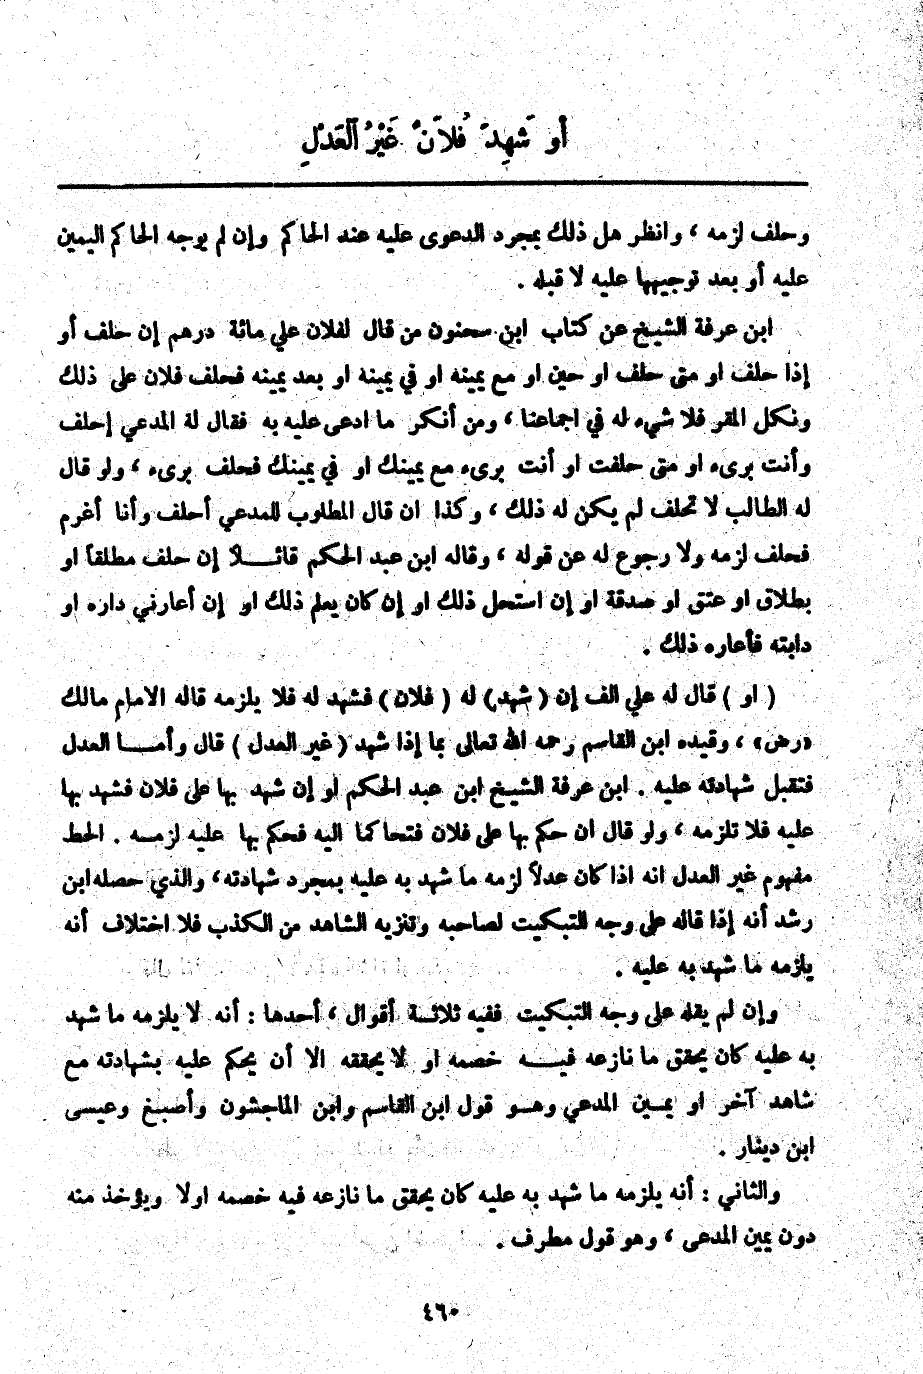 أو شَهِدَ فُلاَنٌ غَيْرُ الْعَدْلِ
وحلف لزمه ، وانظر هل ذلك بمجرد الدعوى عليه عند الحاكم وإن لم يوجه الحاكم اليمين
عليه أو بعد توجيهها عليه لا قبله .
ابن عرفة الشيخ عن كتاب ابن سحنون من قال لفلان علي مائة درهم إن حلف أو
إذا حلف او متى حلف او حين او مع يمينه او في يمينه او بعد يمينه فحلف فلان على ذلك
ونكل المقر فلا شيء له في اجماعنا ، ومن أنكر ما ادعى عليه به فقال له المدعي إحلف
وأنت بريء او متى حلفت او أنت بريء مع يمينك او في يمينك فحلف بريء ، ولو قال
له الطالب لا تحلف لم يكن له ذلك ، وكذا ان قال المطلوب للمدعي أحلف وأنا أغرم
فحلف لزمه ولا رجوع له عن قوله ، وقاله ابن عبد الحكم قائـــلاً إن حلف مطلقاً او
بطلاق او عتق او صدقة او إن استحل ذلك او إن كان يعلم ذلك او إن أعارني داره او
دابته فأعاره ذلك .
( او ) قال له علي الف إن ( شهد ) له ( فلان ) فشهد له فلا يلزمه قاله الامام مالك
«رض» ، وقيده ابن القاسم رحمه الله تعالى بما إذا شهد ( غير العدل ) قال وأمـــا العدل
فتقبل شهادته عليه . ابن عرفة الشيخ ابن عبد الحكم لو إن شهد بها على فلان فشهد بها
عليه فلا تلزمه ، ولو قال ان حكم بها على فلان فتحاكما اليه فحكم بها عليه لزمـــه . الحط
مفهوم غير العدل انه اذا كان عدلاً لزمه ما شهد به عليه بمجرد شهادته، والذي حصله ابن
رشد أنه إذا قاله على وجه التبكيت لصاحبه وتنزيه الشاهد من الكذب فلا اختلاف أنه
يلزمه ما شهد به عليه .
وإن لم يقله على وجه التبكيت ففيه ثلاثـــة أقوال ، أحدها : أنه لا يلزمه ما شهد
به عليه كان يحقق ما نازعه فيـــه خصمه او لا يحققه الا أن يحكم عليه بشهادته مـع
شاهد آخر او يمـــين المدعي وهـــو قول ابن القاسم وابن الماجشون وأصبغ وعيسى
ابن دينار .
والثاني : أنه يلزمه ما شهد به عليه كان يحقق ما نازعه فيه خصمه اولا ويؤخذ منه
دون يمين المدعى ، وهو قول مطرف .
٤٦٠